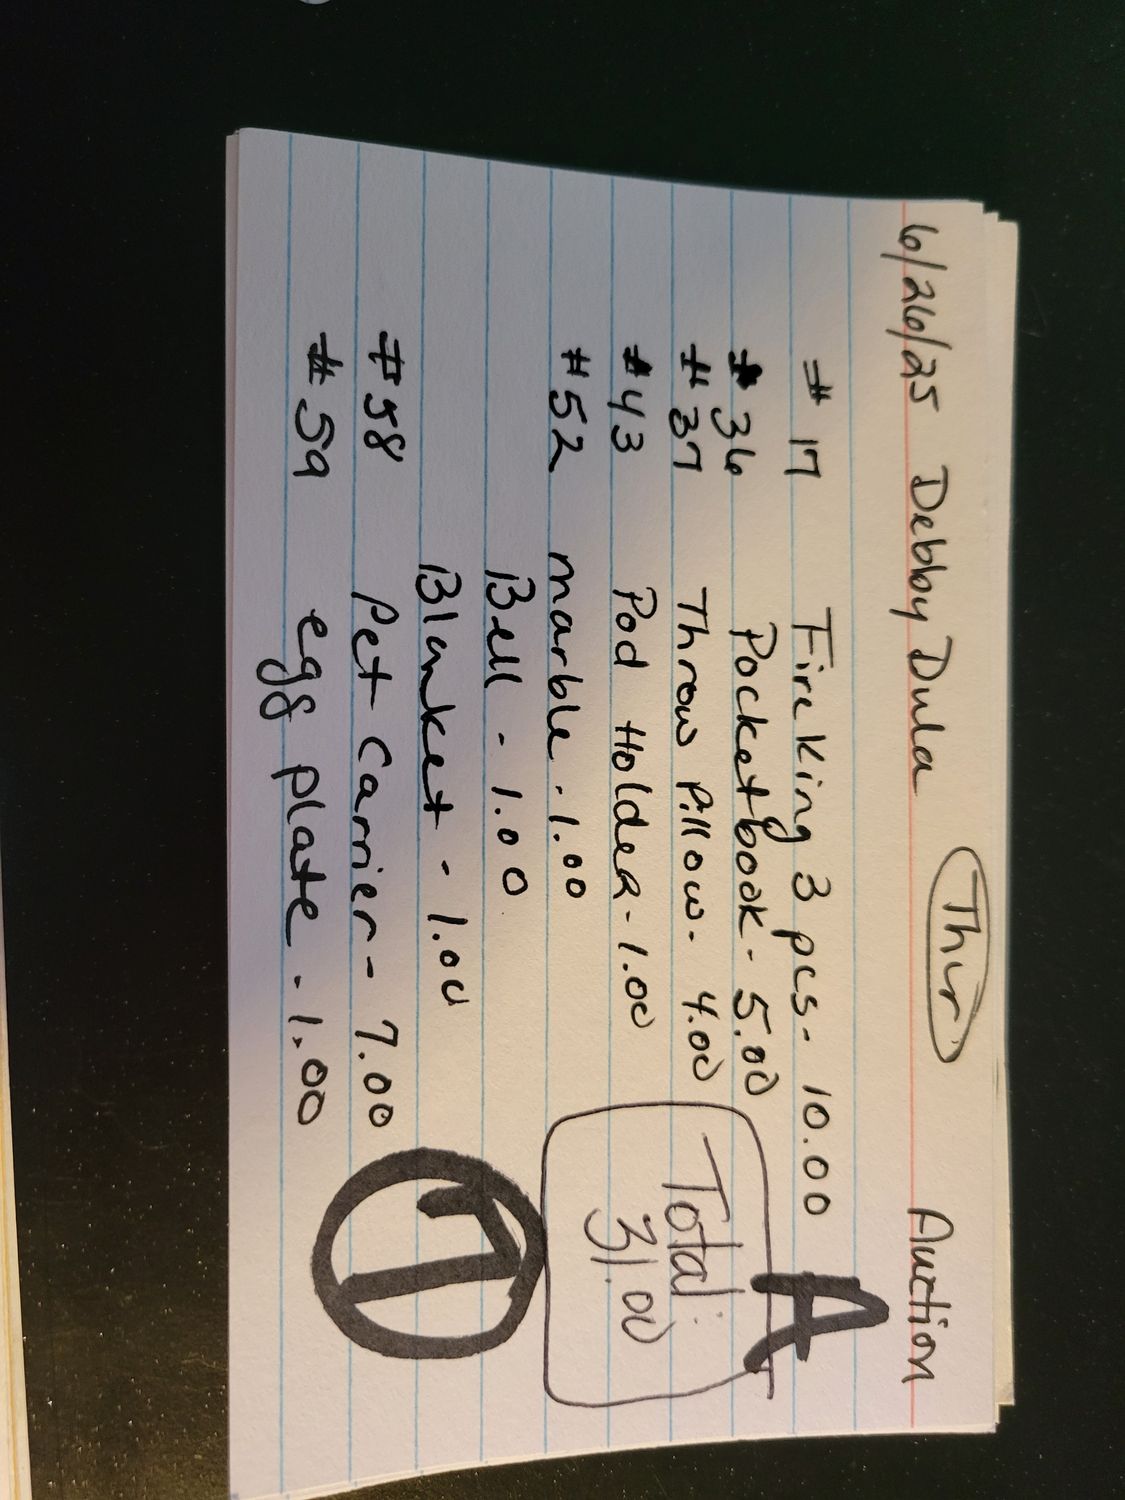 Thur
6/26/25 Debby Dula Auction
# 17 Fire King 3 pcs- 10.00
# 36 Pocketbook- 5.00
# 37 Throw Pillow- 4.00
# 43 Pod Holder-1.00
# 52 marble -1.00
Bell - 1.00
Blanket - 1.00
# 58 Pet Carrier- 7.00
# 59 egg plate -1.00
A
Total:
31.00
1